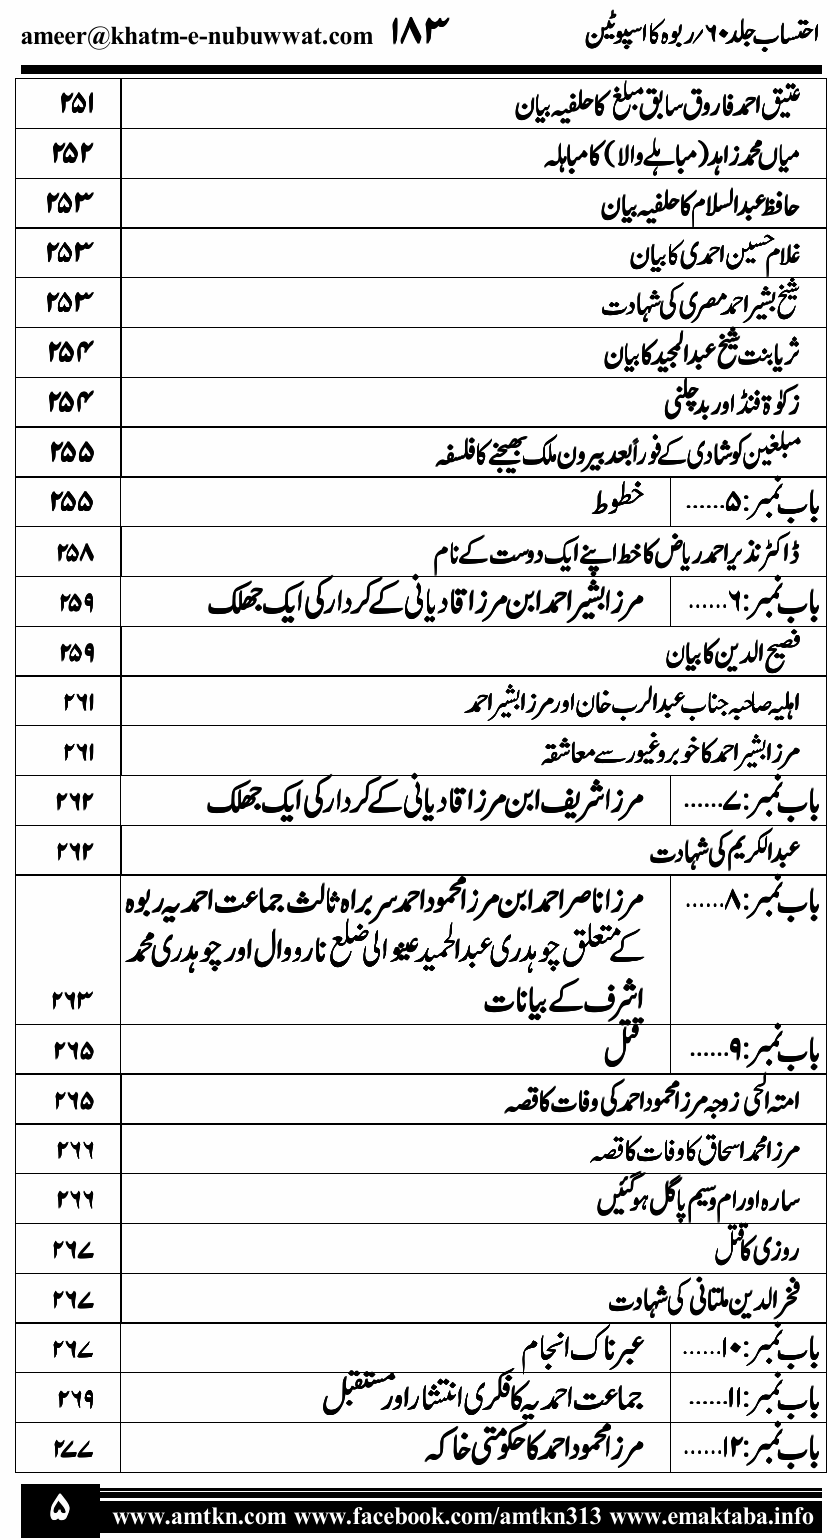 احتساب جلد ۶۰/ربوہ کا اسپوٹین ۱۸۳ ameer@khatm-e-nubuwwat.com
عتیق احمد فاروق سابق مبلغ کا حلفیہ بیان ۲۵۱
میاں محمد زاہد (مباہلے والا) کا مباہلہ ۲۵۲
حافظ عبدالسلام کا حلفیہ بیان ۲۵۳
غلام حسین احمدی کا بیان ۲۵۳
شیخ بشیر احمد مصری کی شہادت ۲۵۳
ثریا بنت شیخ عبدالمجید کا بیان ۲۵۴
زکوٰۃ فنڈ اور بدچلنی ۲۵۴
مبلغین کو شادی کے فوراً بعد بیرون ملک بھیجنے کا فلسفہ ۲۵۵
باب نمبر:۵...... خطوط ۲۵۵
ڈاکٹر نذیر احمد ریاض کا خط اپنے ایک دوست کے نام ۲۵۸
باب نمبر:۶...... مرزا بشیر احمد ابن مرزا قادیانی کے کردار کی ایک جھلک ۲۵۹
فصیح الدین کا بیان ۲۵۹
اہلیہ صاحبہ جناب عبدالرب خان اور مرزا بشیر احمد ۲۶۱
مرزا بشیر احمد کا خوبرو غیور سے معاشقہ ۲۶۱
باب نمبر:۷...... مرزا شریف ابن مرزا قادیانی کے کردار کی ایک جھلک ۲۶۲
عبدالکریم کی شہادت ۲۶۲
باب نمبر:۸...... مرزا ناصر احمد ابن مرزا محمود احمد سربراہ ثالث جماعت احمدیہ ربوہ
کے متعلق چوہدری عبدالحمید عینو الی ضلع نارووال اور چوہدری محمد
اشرف کے بیانات ۲۶۳
باب نمبر:۹...... قتل ۲۶۵
امتہ الحی زوجہ مرزا محمود احمد کی وفات کا قصہ ۲۶۵
مرزا محمد اسحاق کا وفات کا قصہ ۲۶۶
سارہ اور ام وسیم پاگل ہو گئیں ۲۶۶
روزی کا قتل ۲۶۷
فخر الدین ملتانی کی شہادت ۲۶۷
باب نمبر:۱۰...... عبرناک انجام ۲۶۷
باب نمبر:۱۱...... جماعت احمدیہ کا فکری انتشار اور مستقبل ۲۶۹
باب نمبر:۱۲...... مرزا محمود احمد کا حکومتی خاکہ ۲۷۷
۵ www.amtkn.com www.facebook.com/amtkn313 www.emaktaba.info